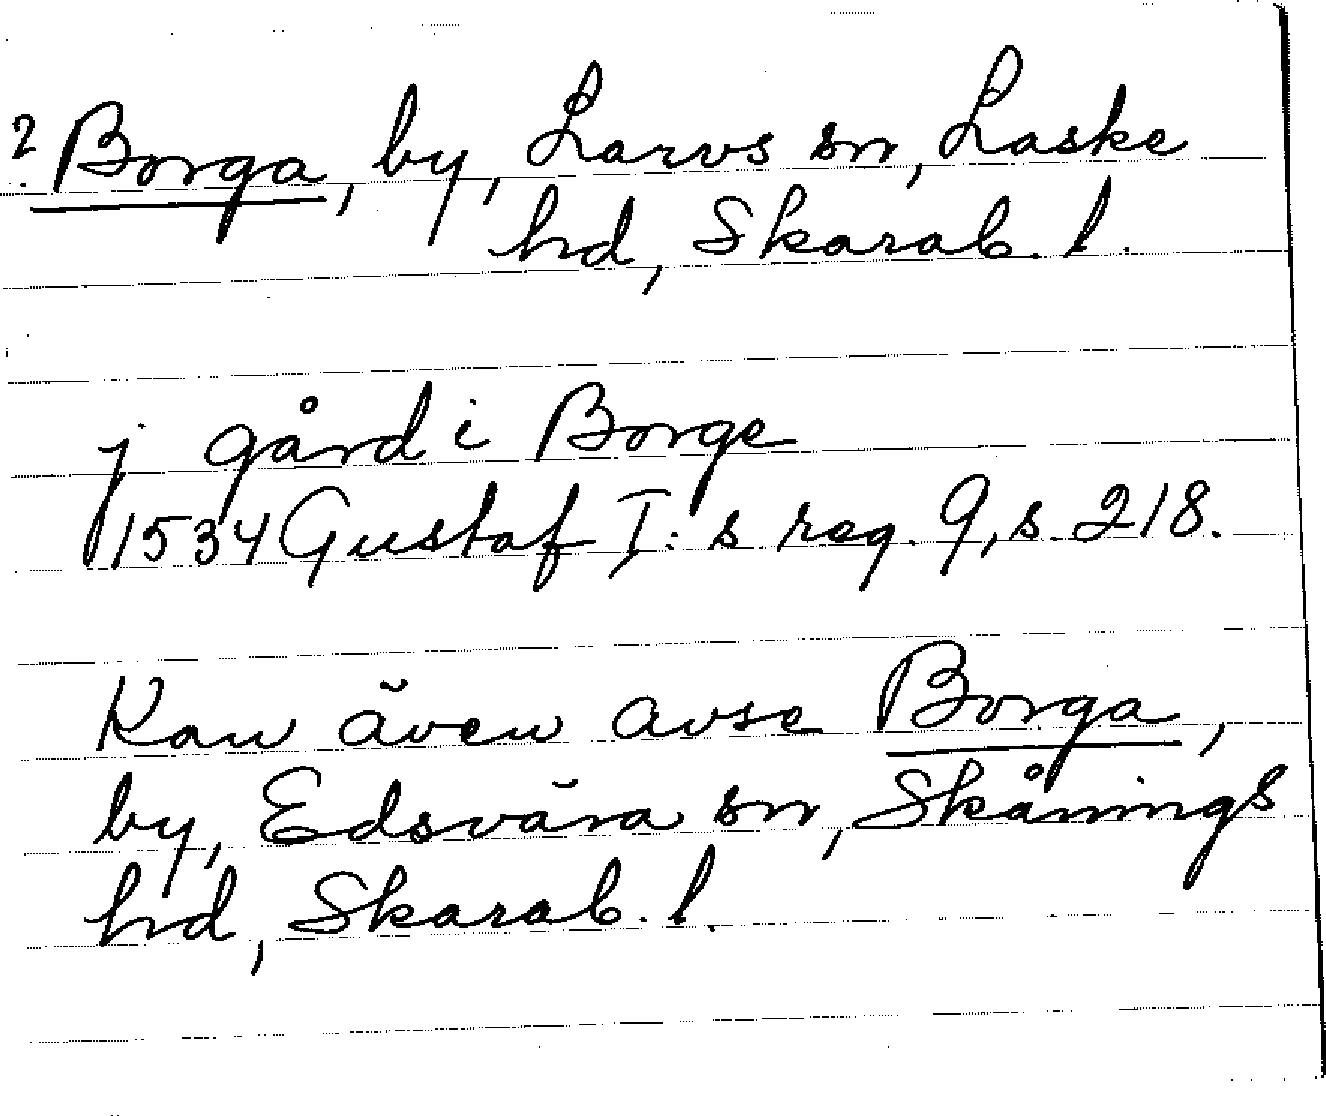 ? Borga, by, Larvs sn, Laske
hd, Skarab. l.
j gård i Borge
1534 Gustaf I:s reg. 9, s. 218.
Kan även avse Borga,
by, Edsvära sn, Skånings
hd, Skarab. l.